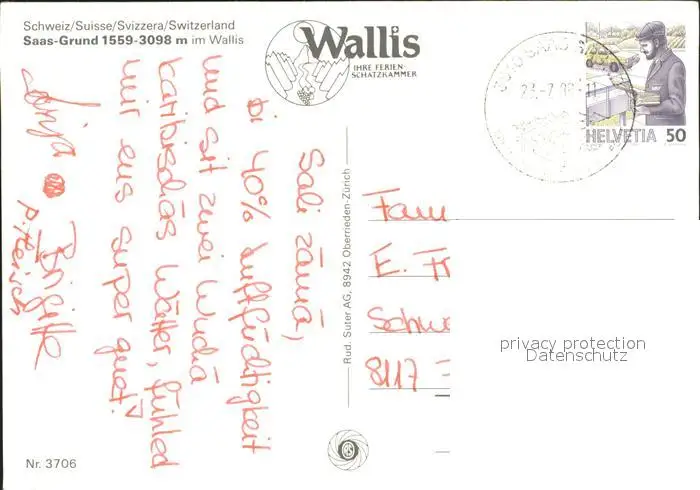 Schweiz/Suisse/Svizzera/Switzerland
Saas-Grund 1559-3098 m im Wallis
Wallis
IHRE FERIEN-
SCHATZKAMMER
23.-7.
HELVETIA 50
Sali zämä,
bi 40% Luftfüchtigkeit
und sit zwei Wuchä
karibischäs Wätter, fühled
mir eus super guet!
Sonja
Brigitte
Rud. Suter AG, 8942 Oberrieden-Zürich
Fam
E.
Schw
8117
privacy protection
Datenschutz
Nr. 3706